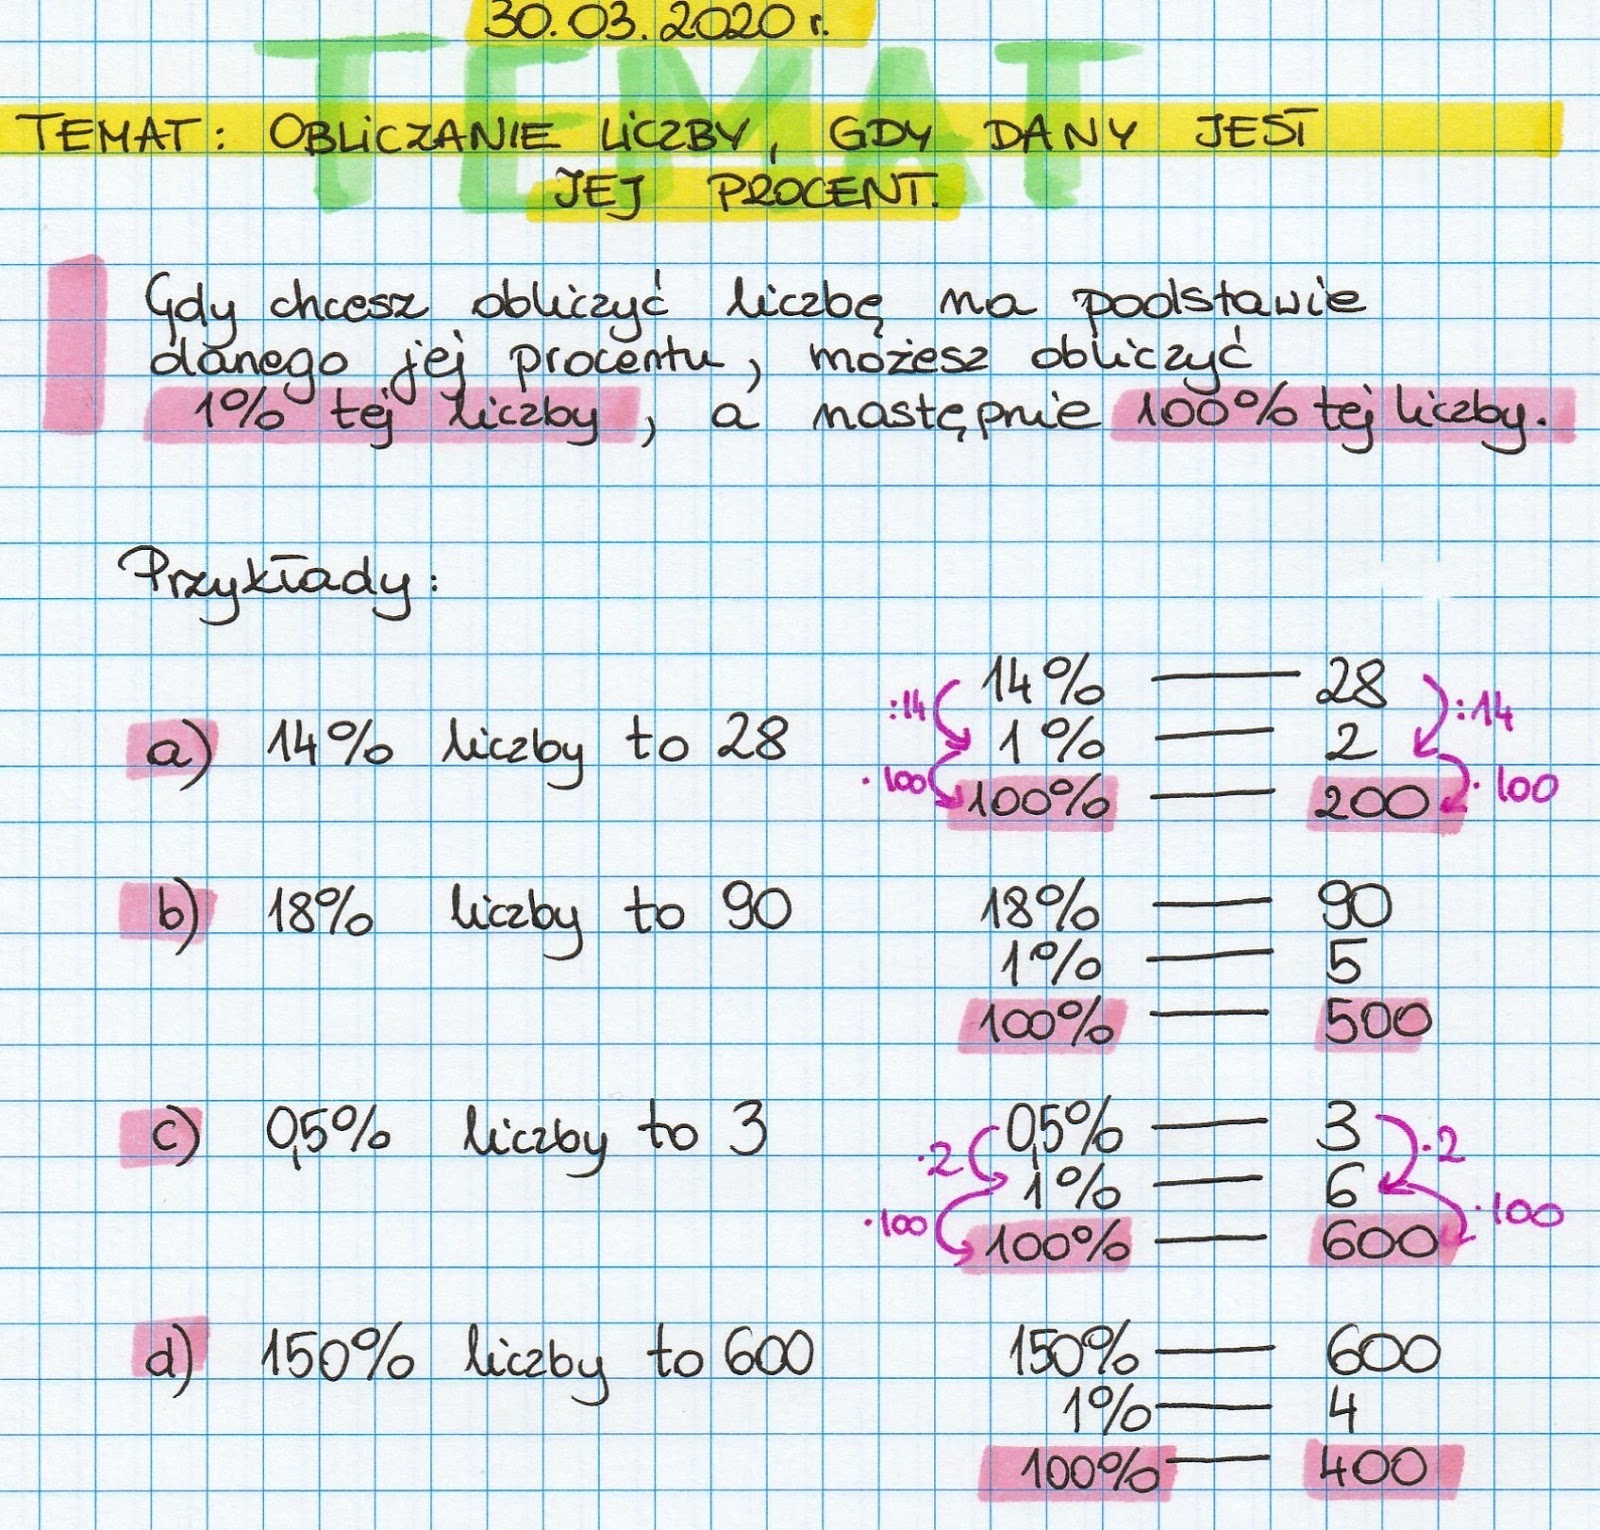 30.03.2020 r.
TEMAT
TEMAT: OBLICZANIE LICZBY, GDY DANY JEST
JEJ PROCENT.
Gdy chcesz obliczyć liczbę na podstawie
danego jej procentu, możesz obliczyć
1% tej liczby, a następnie 100% tej liczby.
Przykłady:
a) 14% liczby to 28
14% — 28
:14 :14
1% — 2
·100 ·100
100% — 200
b) 18% liczby to 90
18% — 90
1% — 5
100% — 500
c) 0,5% liczby to 3
0,5% — 3
·2 ·2
1% — 6
·100 ·100
100% — 600
d) 150% liczby to 600
150% — 600
1% — 4
100% — 400